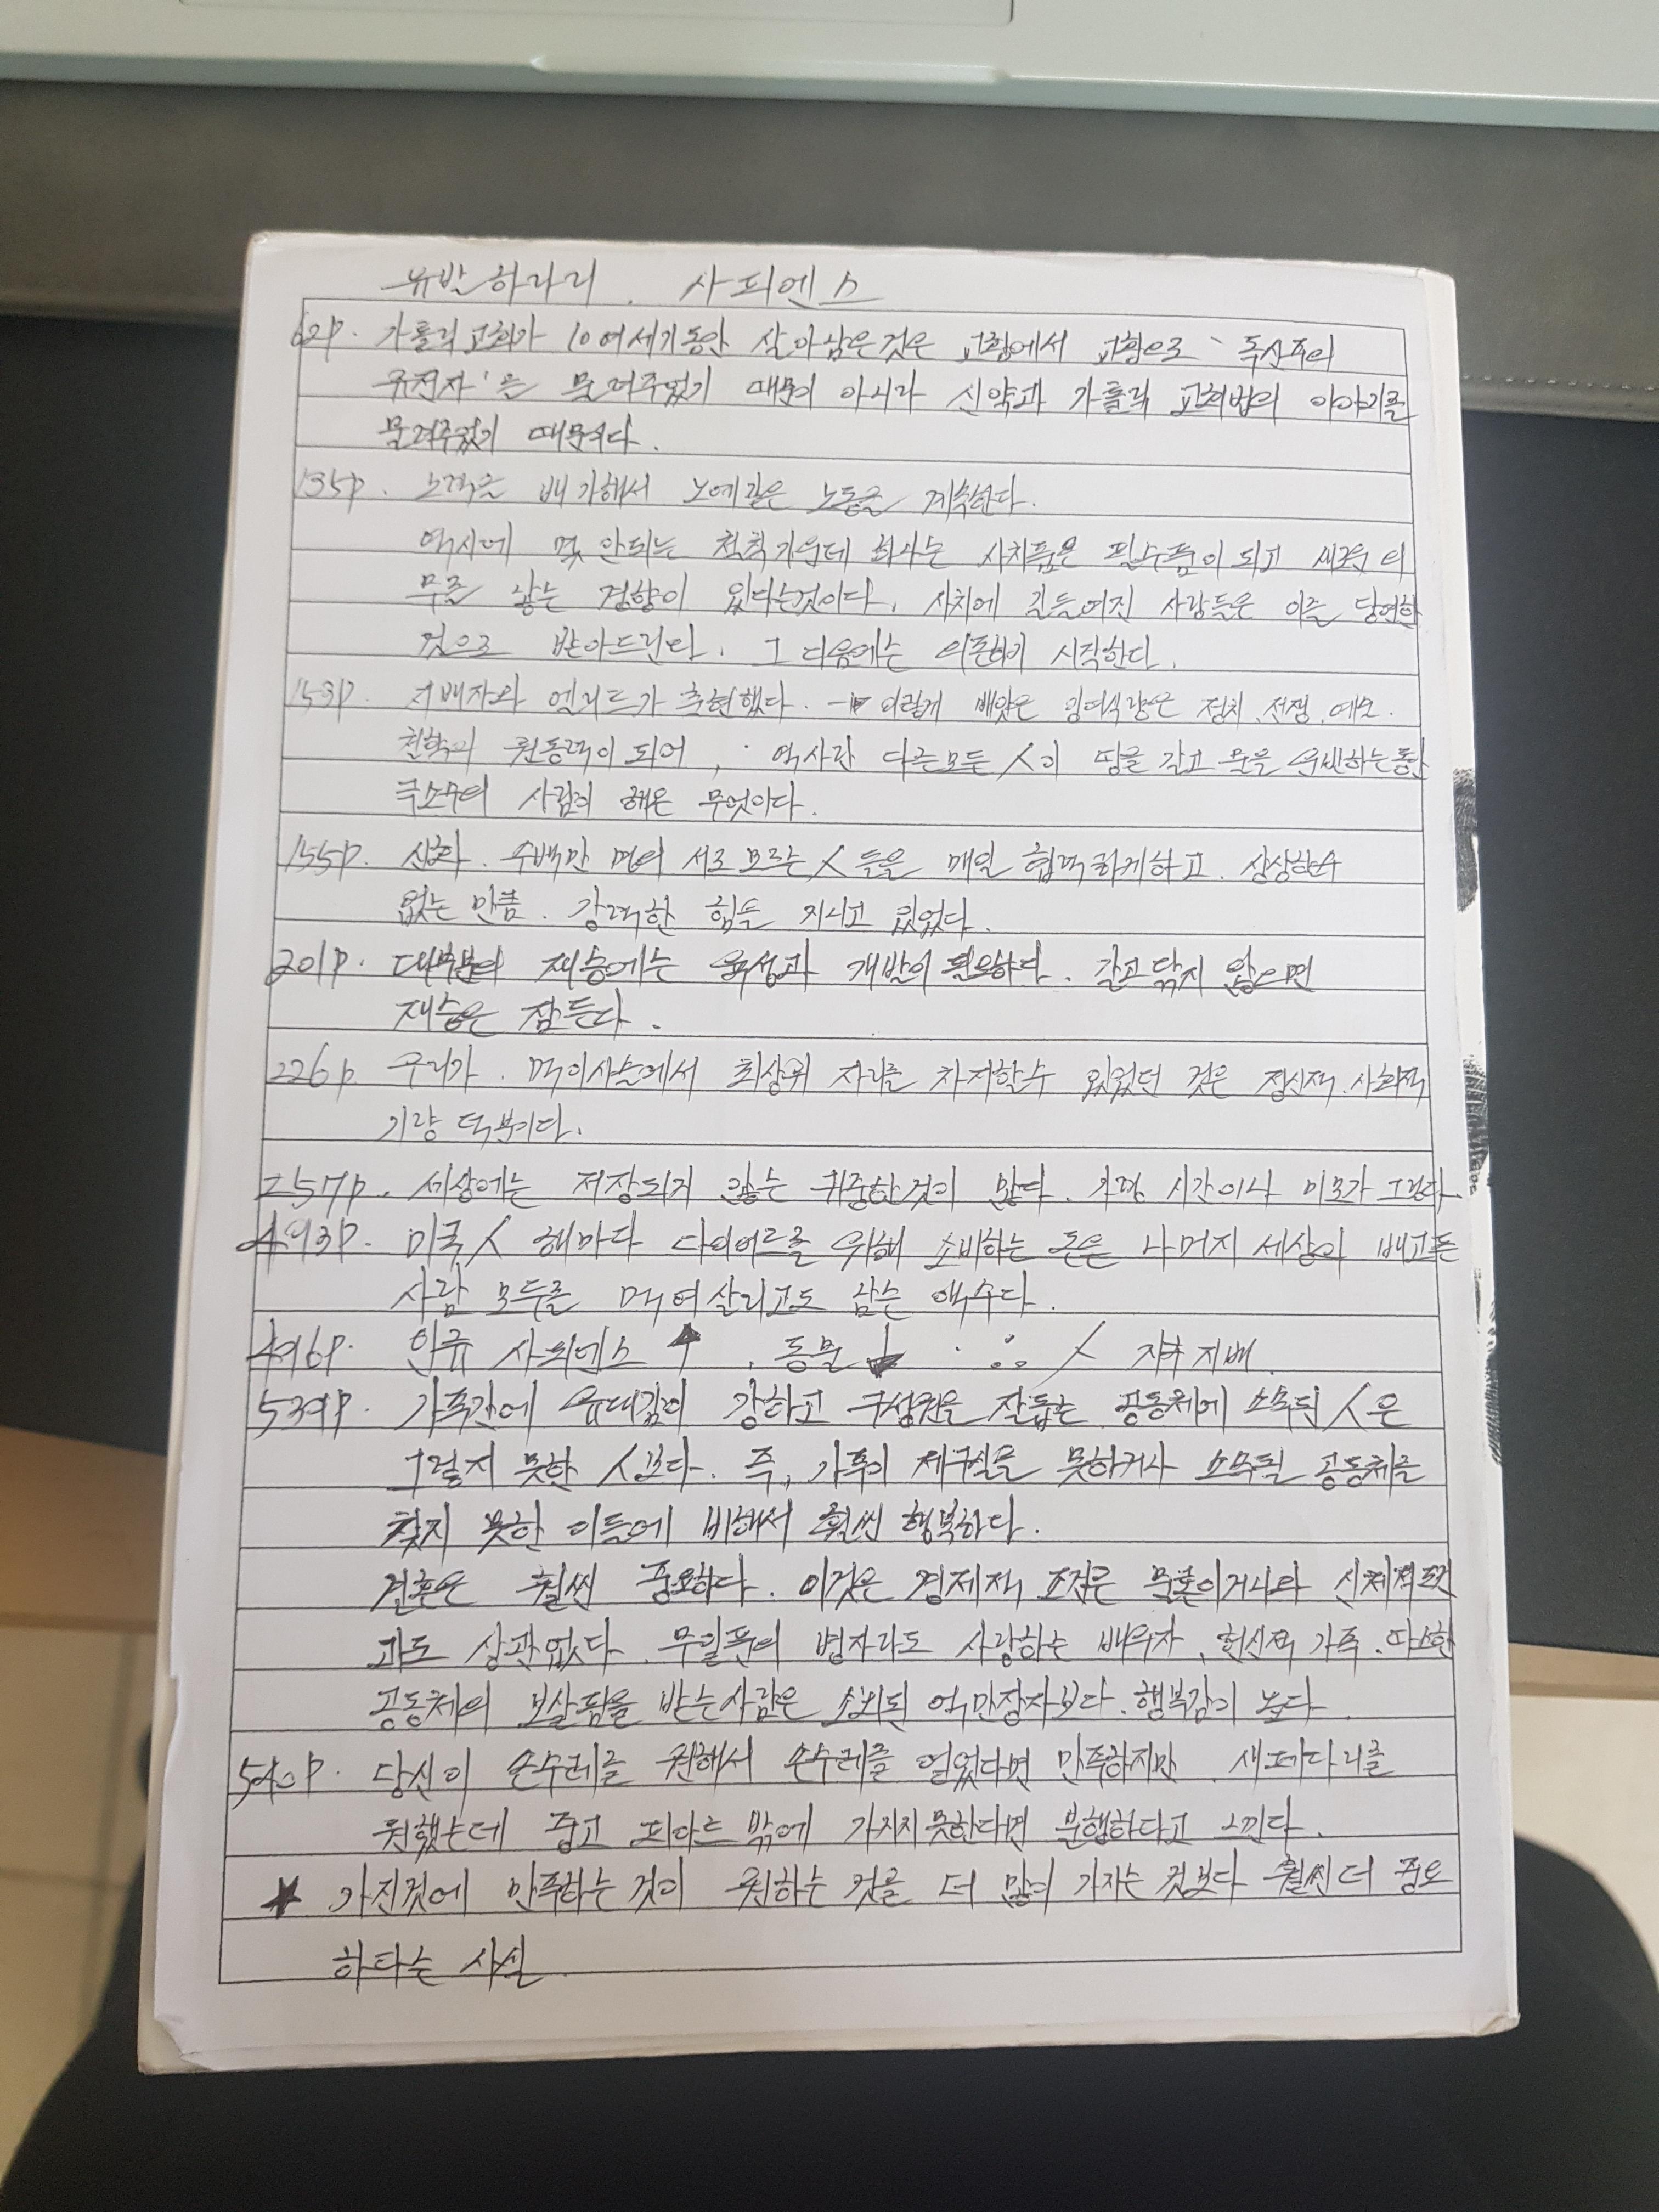 유발하라리. 사피엔스
62P. 가톨릭교회가 10여세기동안 살아남은것은 교황에서 교황으로 '독신주의
유전자'를 물려주었기 때문이 아니라 신약과 가톨릭 교회법의 이야기를
물려주었기 때문이다.
135P. 노력을 배가해서 노예같은 노동을 계속한다.
역사에 몇 안되는 철칙가운데 하나는 사치품은 필수품이 되고 새로운 의
무를 낳는 경향이 있다는것이다. 사치에 길들여진 사람들은 이를 당연한
것으로 받아드린다. 그 다음에는 의존하기 시작한다.
153P. 지배자와 엘리트가 출현했다. → 이렇게 빼앗은 잉여식량은 정치, 전쟁, 예술.
철학의 원동력이 되어, 역사란 다른모든 人이 땅을 갈고 물을 운반하는동안
극소수의 사람이 해온 무엇이다.
155P. 신화. 수백만 명의 서로 모르는 人들을 매일 협력하게하고. 상상할수
없는 만큼. 강력한 힘을 지니고 있었다.
201P. 대부분의 재능에는 육성과 개발이 필요하다. 갈고 닦지 않으면
재능은 잠든다.
226P. 우리가. 먹이사슬에서 최상위 자리를 차지할수 있었던 것은 정신적. 사회적
기량 덕분이다.
257P. 세상에는 저장되지 않는 귀중한것이 많다. 가령 시간이나 미모가 그렇다
493P. 미국人 해마다 다이어트를 위해 소비하는 돈은 나머지 세상의 배고픈
사람 모두를 먹여살리고도 남는 액수다.
496P. 인류 사피엔스 ↑, 동물 ↓ ∴ 人 지배.
539P. 가족간에 유대감이 강하고 구성원을 잘돕는 공동체에 소속된 人은
그렇지 못한 人보다. 즉, 가족이 제구실을 못하거나 소속될 공동체를
찾지 못한 이들에 비해서 훨씬 행복하다.
결혼은 훨씬 중요하다. 이것은 경제적 조건은 물론이거니와 신체적조건
과도 상관없다. 무일푼의 병자라도 사랑하는 배우자, 헌신적 가족. 따스한
공동체의 보살핌을 받는사람은 소외된 억만장자보다. 행복감이 높다.
540P. 당신이 손수레를 원해서 손수레를 얻었다면 만족하지만. 새페라리를
원했는데 중고 피아트 밖에 가지지못한다면 불행하다고 느낀다.
★ 가진것에 만족하는 것이 원하는 것을 더 많이 가지는 것보다 훨씬 더 중요
하다는 사실.